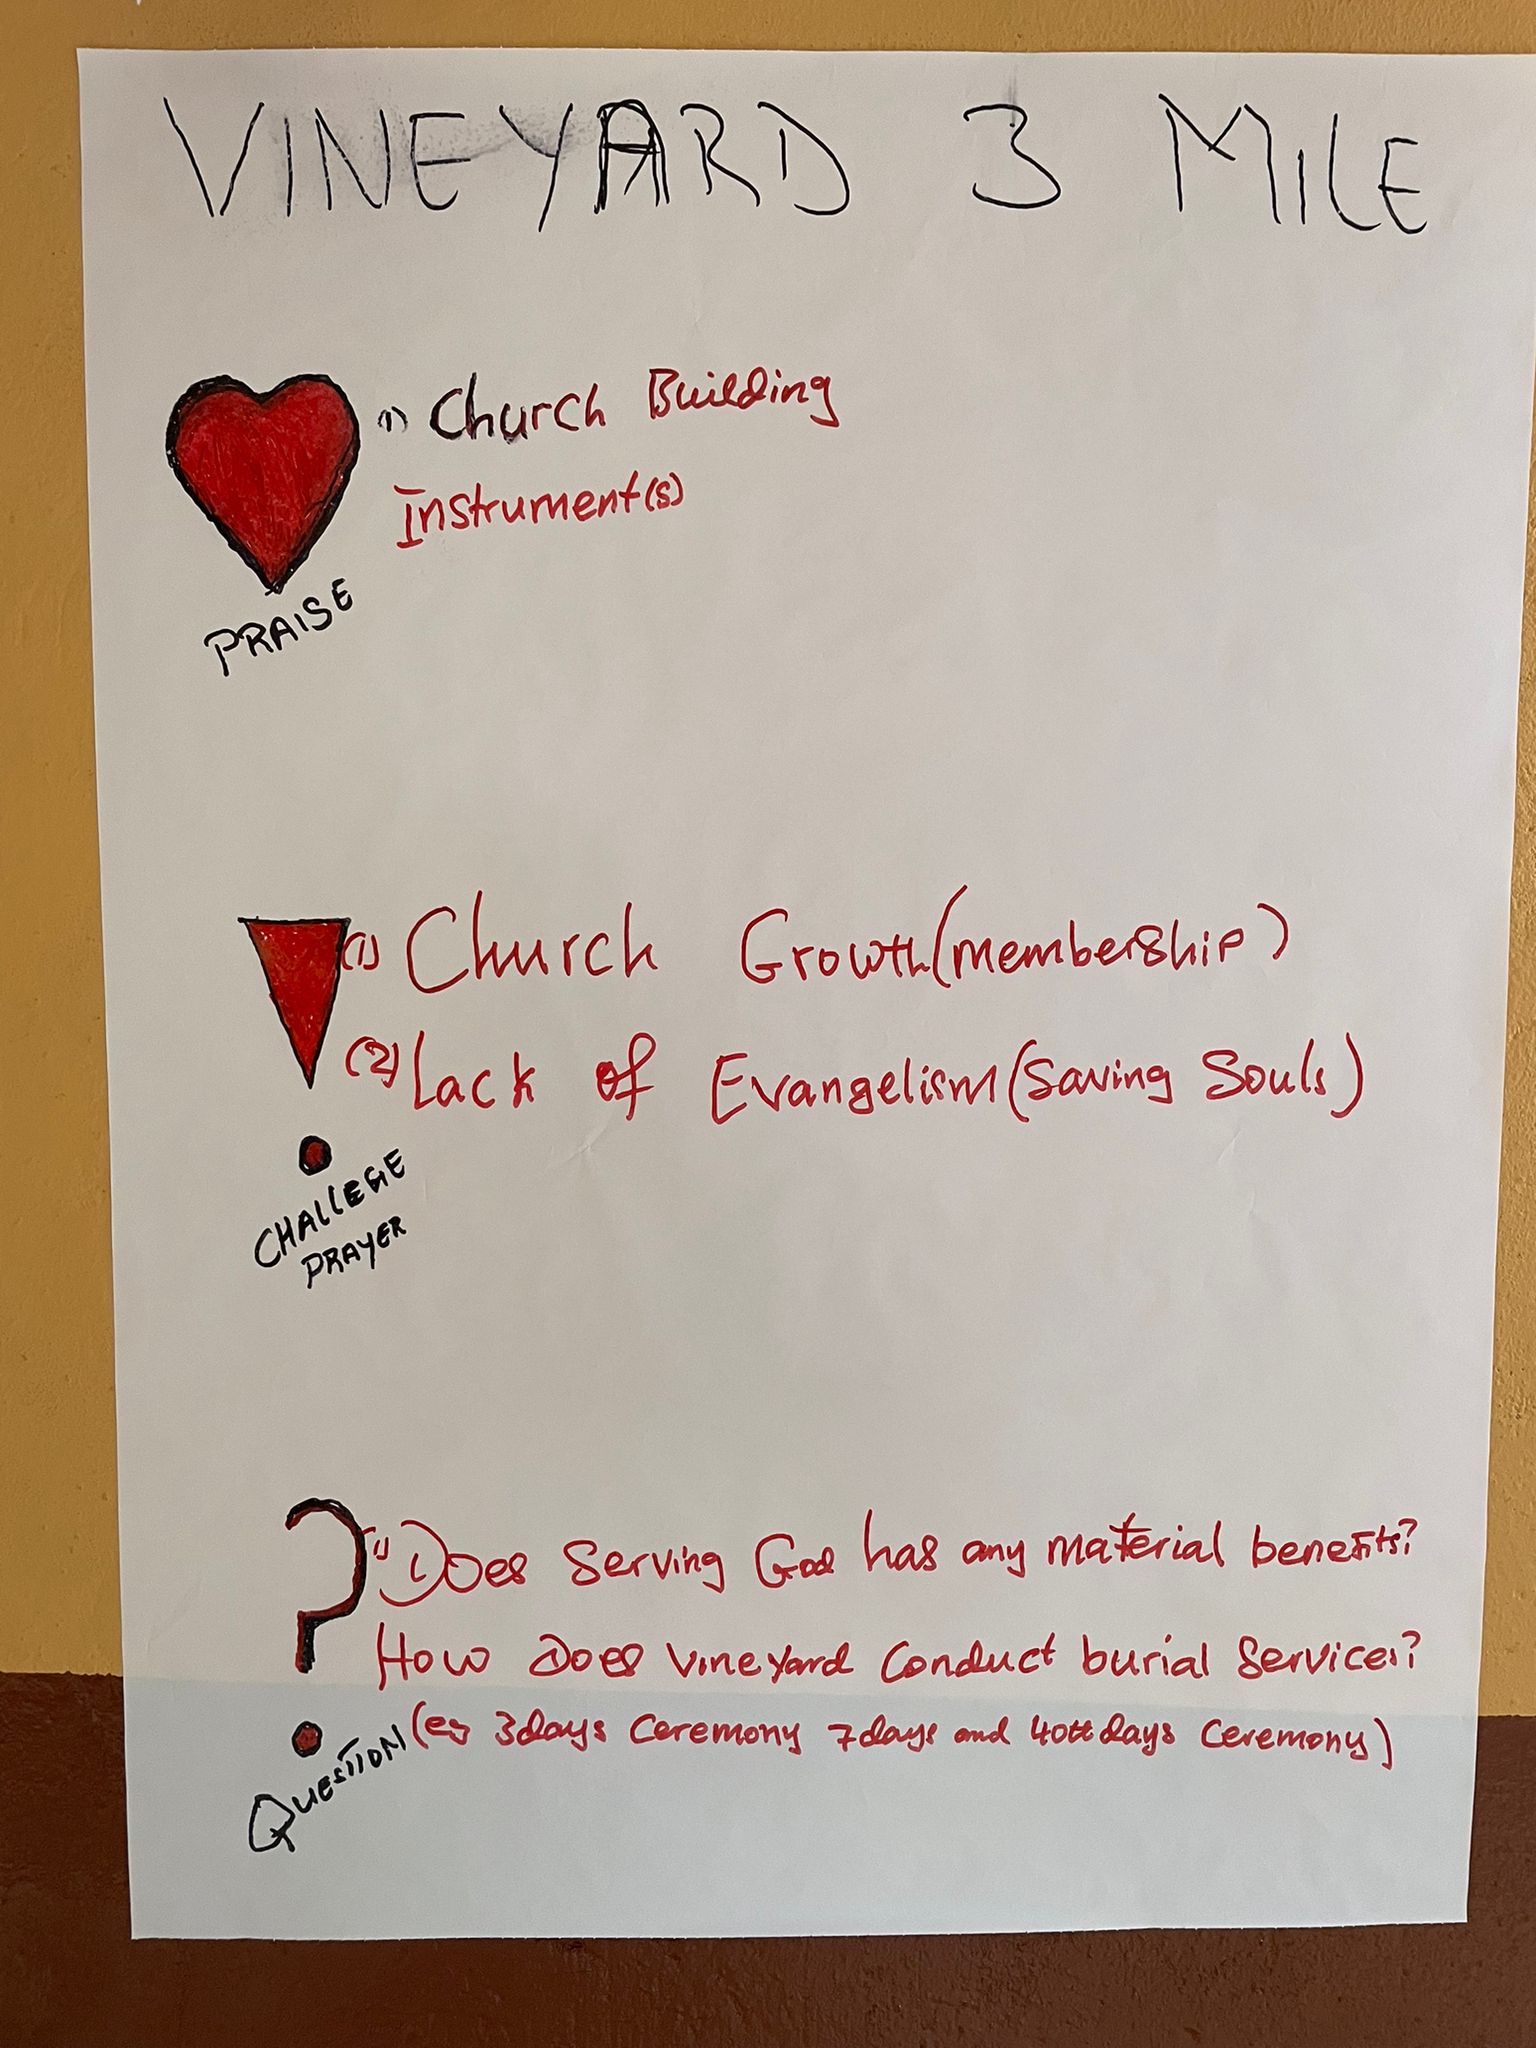 VINEYARD 3 MILE
(1) Church Building
Instrument(s)
PRAISE
(1) Church Growth (membership)
(2) Lack of Evangelism (Saving Souls)
CHALLEGE
PRAYER
(1) Does Serving God has any material benefits?
How Does Vineyard Conduct burial Services?
(eg 3days Ceremony 7days and 40 days Ceremony)
QUESTION